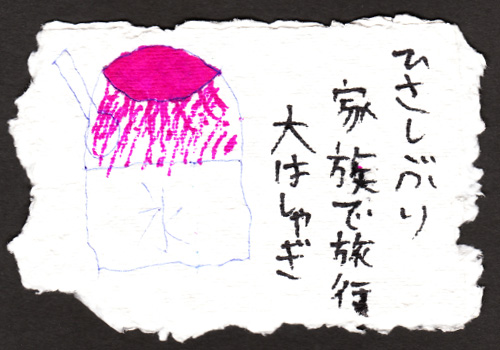 ひさしぶり
家族で旅行
大はしゃぎ
氷